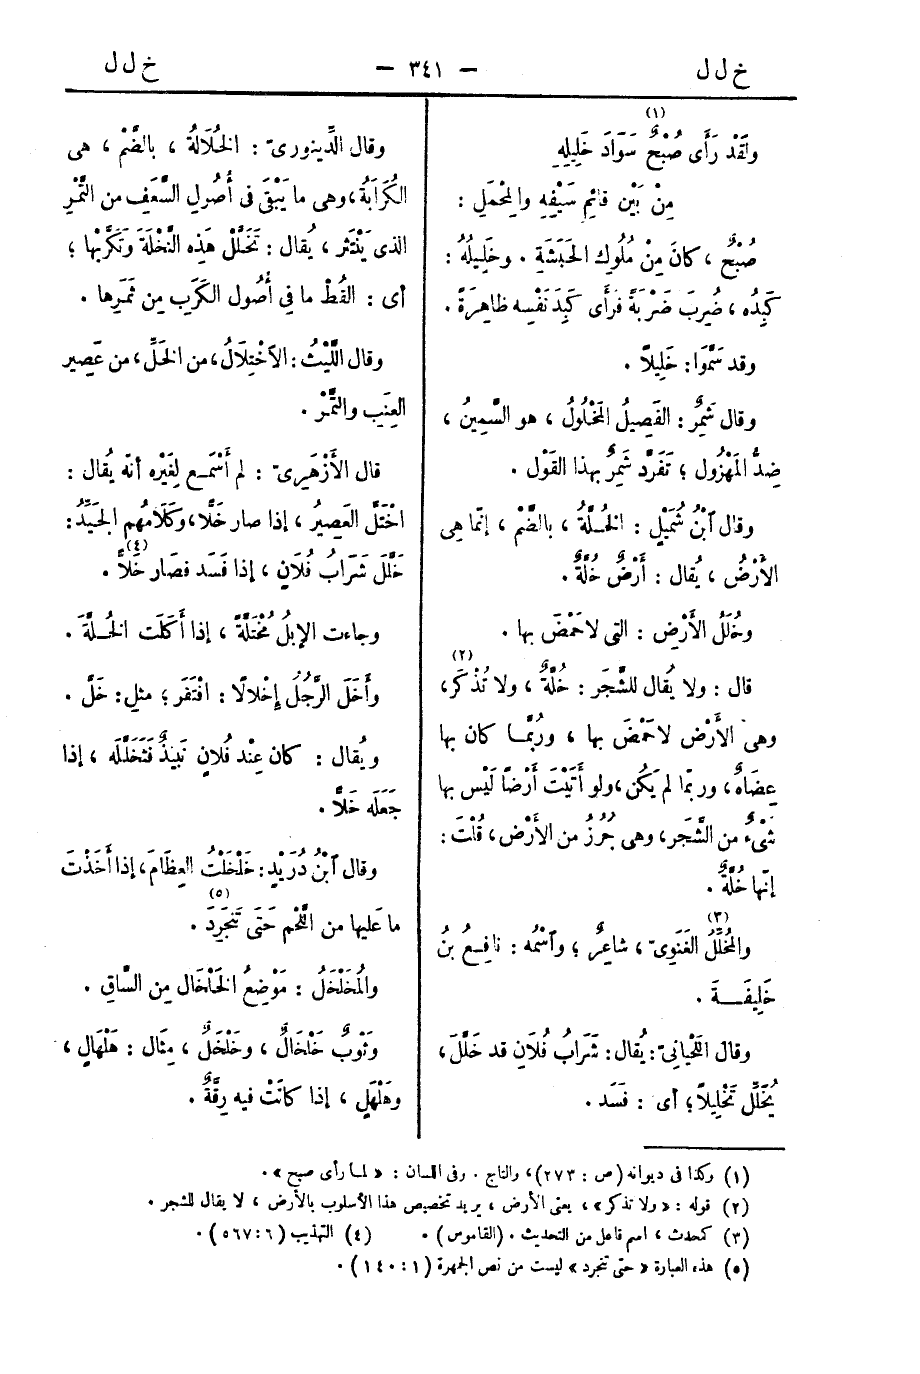 خ ل ل
— ٣٤١ —
خ ل ل
ولَقَدْ رَأَى صُبْحٌ سَوَادَ خَلِيلِهِ (١)
مِنْ بَيْن قائِم سَيْفِهِ والمِحْمَلِ :
صُبْحٌ ، كانَ مِنْ مُلُوكِ الحَبَشَةِ . وخَلِيلُهُ :
كَبِدُه ، ضُرِبَ ضَرْبَةً فرأَى كَبِدَ نَفْسِه ظاهِرَةً .
وقد سَمَّوْا : خَلِيلاً .
وقال شَمِرٌ : الفَصِيلُ المَخْلُولُ ، هو السَّمِينُ ،
ضِدُّ المَهْزُول ؛ تَفَرَّد شَمِرٌ بهذا القَوْل .
وقال ٱبْنُ شُمَيْلٍ : الخُلَّةُ ، بالضَّمْ ، إنَّما هى
الأَرْضُ ، يُقال : أَرْضٌ خُلَّةٌ .
وخُلَلُ الأَرْضِ : التى لا حَمْضَ بها .
قال : ولا يُقال للشَّجَر : خُلَّةٌ ، ولا تُذْكَر، (٢)
وهى الأَرْض لا حَمْضَ بها ، ورُبَّما كان بها
عِضَاهٌ ، وربّما لم يَكُن ، ولو أَتَيْتَ أَرْضاً لَيْس بها
شَىْءٌ من الشَّجَر ، وهى جُرُزٌ من الأَرْض ، قُلْتَ :
إنّها خُلَّةٌ .
والمُخَلِّلُ الغَنَوِىّ ، شاعِرٌ ؛ وٱسْمُه : نافِعُ بنُ (٣)
خَلِيفَةَ .
وقال اللِّحْيانِىّ : يُقال : شَرَابُ فُلَان قد خَلَّلَ ،
يُخَلِّل تَخْلِيلاً ؛ أى : فَسَد .
وقال الدِّينورىّ : الخُلَالَةُ ، بالضَّمْ ، هى
الكُرَابَةُ ، وهى ما يَبْقَى فى أُصُولِ السَّعَفِ من التَّمْرِ
الذى يَنْتَثر ، يُقال : تَخَلَّلْ هٰذِه النَّخْلَةَ وتَكَرَّبْها ؛
أى : القُطْ ما فى أُصُول الكَرَبِ مِن تَمَرِها .
وقال اللَّيْثُ : الاخْتِلَالُ ، من الخَلِّ ، من عَصِير
العِنَبِ والتَّمْر .
قال الأَزْهَرِىّ : لم أَسْمَع لِغَيْرِه أنّه يُقال :
اخْتَلَّ العَصِيرُ ، إذا صار خَلًّا ، وكَلَامُهم الجَيِّدُ :
خَلَّل شَرَابُ فُلَانٍ ، إذا فَسَد فصَار خَلًّا (٤) .
وجاءت الإبلُ مُخْتَلَّةً ، إذا أَكَلَت الخُلَّةَ .
وأَخَلَّ الرَّجُلُ إِخْلالًا : افْتَقَر ؛ مثل : خَلَّ .
ويُقال : كان عِنْد فُلانٍ نَبِيذٌ فَتَخَلَّلَه ، إذا
جَعَلَه خَلًّا .
وقال ٱبْنُ دُرَيْدٍ : خَلْخَلْتُ العِظَامَ ، إذا أَخَذْتَ
ما عَليها من اللَّحْم حَتَى تَنْجَرِدَ (٥) .
والمُخَلْخَلُ : مَوْضِعُ الخَلْخَال مِن السَّاقِ .
وثَوْبٌ خَلْخَالٌ ، وخَلْخَلٌ ، مِثَال : هَلْهَالٍ ،
وهَلْهَلٍ ، إذا كانَتْ فيه رِقَّةٌ .
(١) وكذا فى ديوانه (ص : ٢٧٣)، والتاج . وفى اللسان : «لما رأى صبح» .
(٢) قوله : «ولا تذكر» ، يعنى الأرض ، يريد تخصيص هذا الأسلوب بالأرض ، لا يقال للشجر .
(٣) كمحدث ، اسم فاعل من التحديث . (القاموس) . (٤) التهذيب (٦ : ٥٦٧) .
(٥) هذه العبارة «حتى تنجرد» ليست من نص الجمهرة (١ : ١٤٠) .